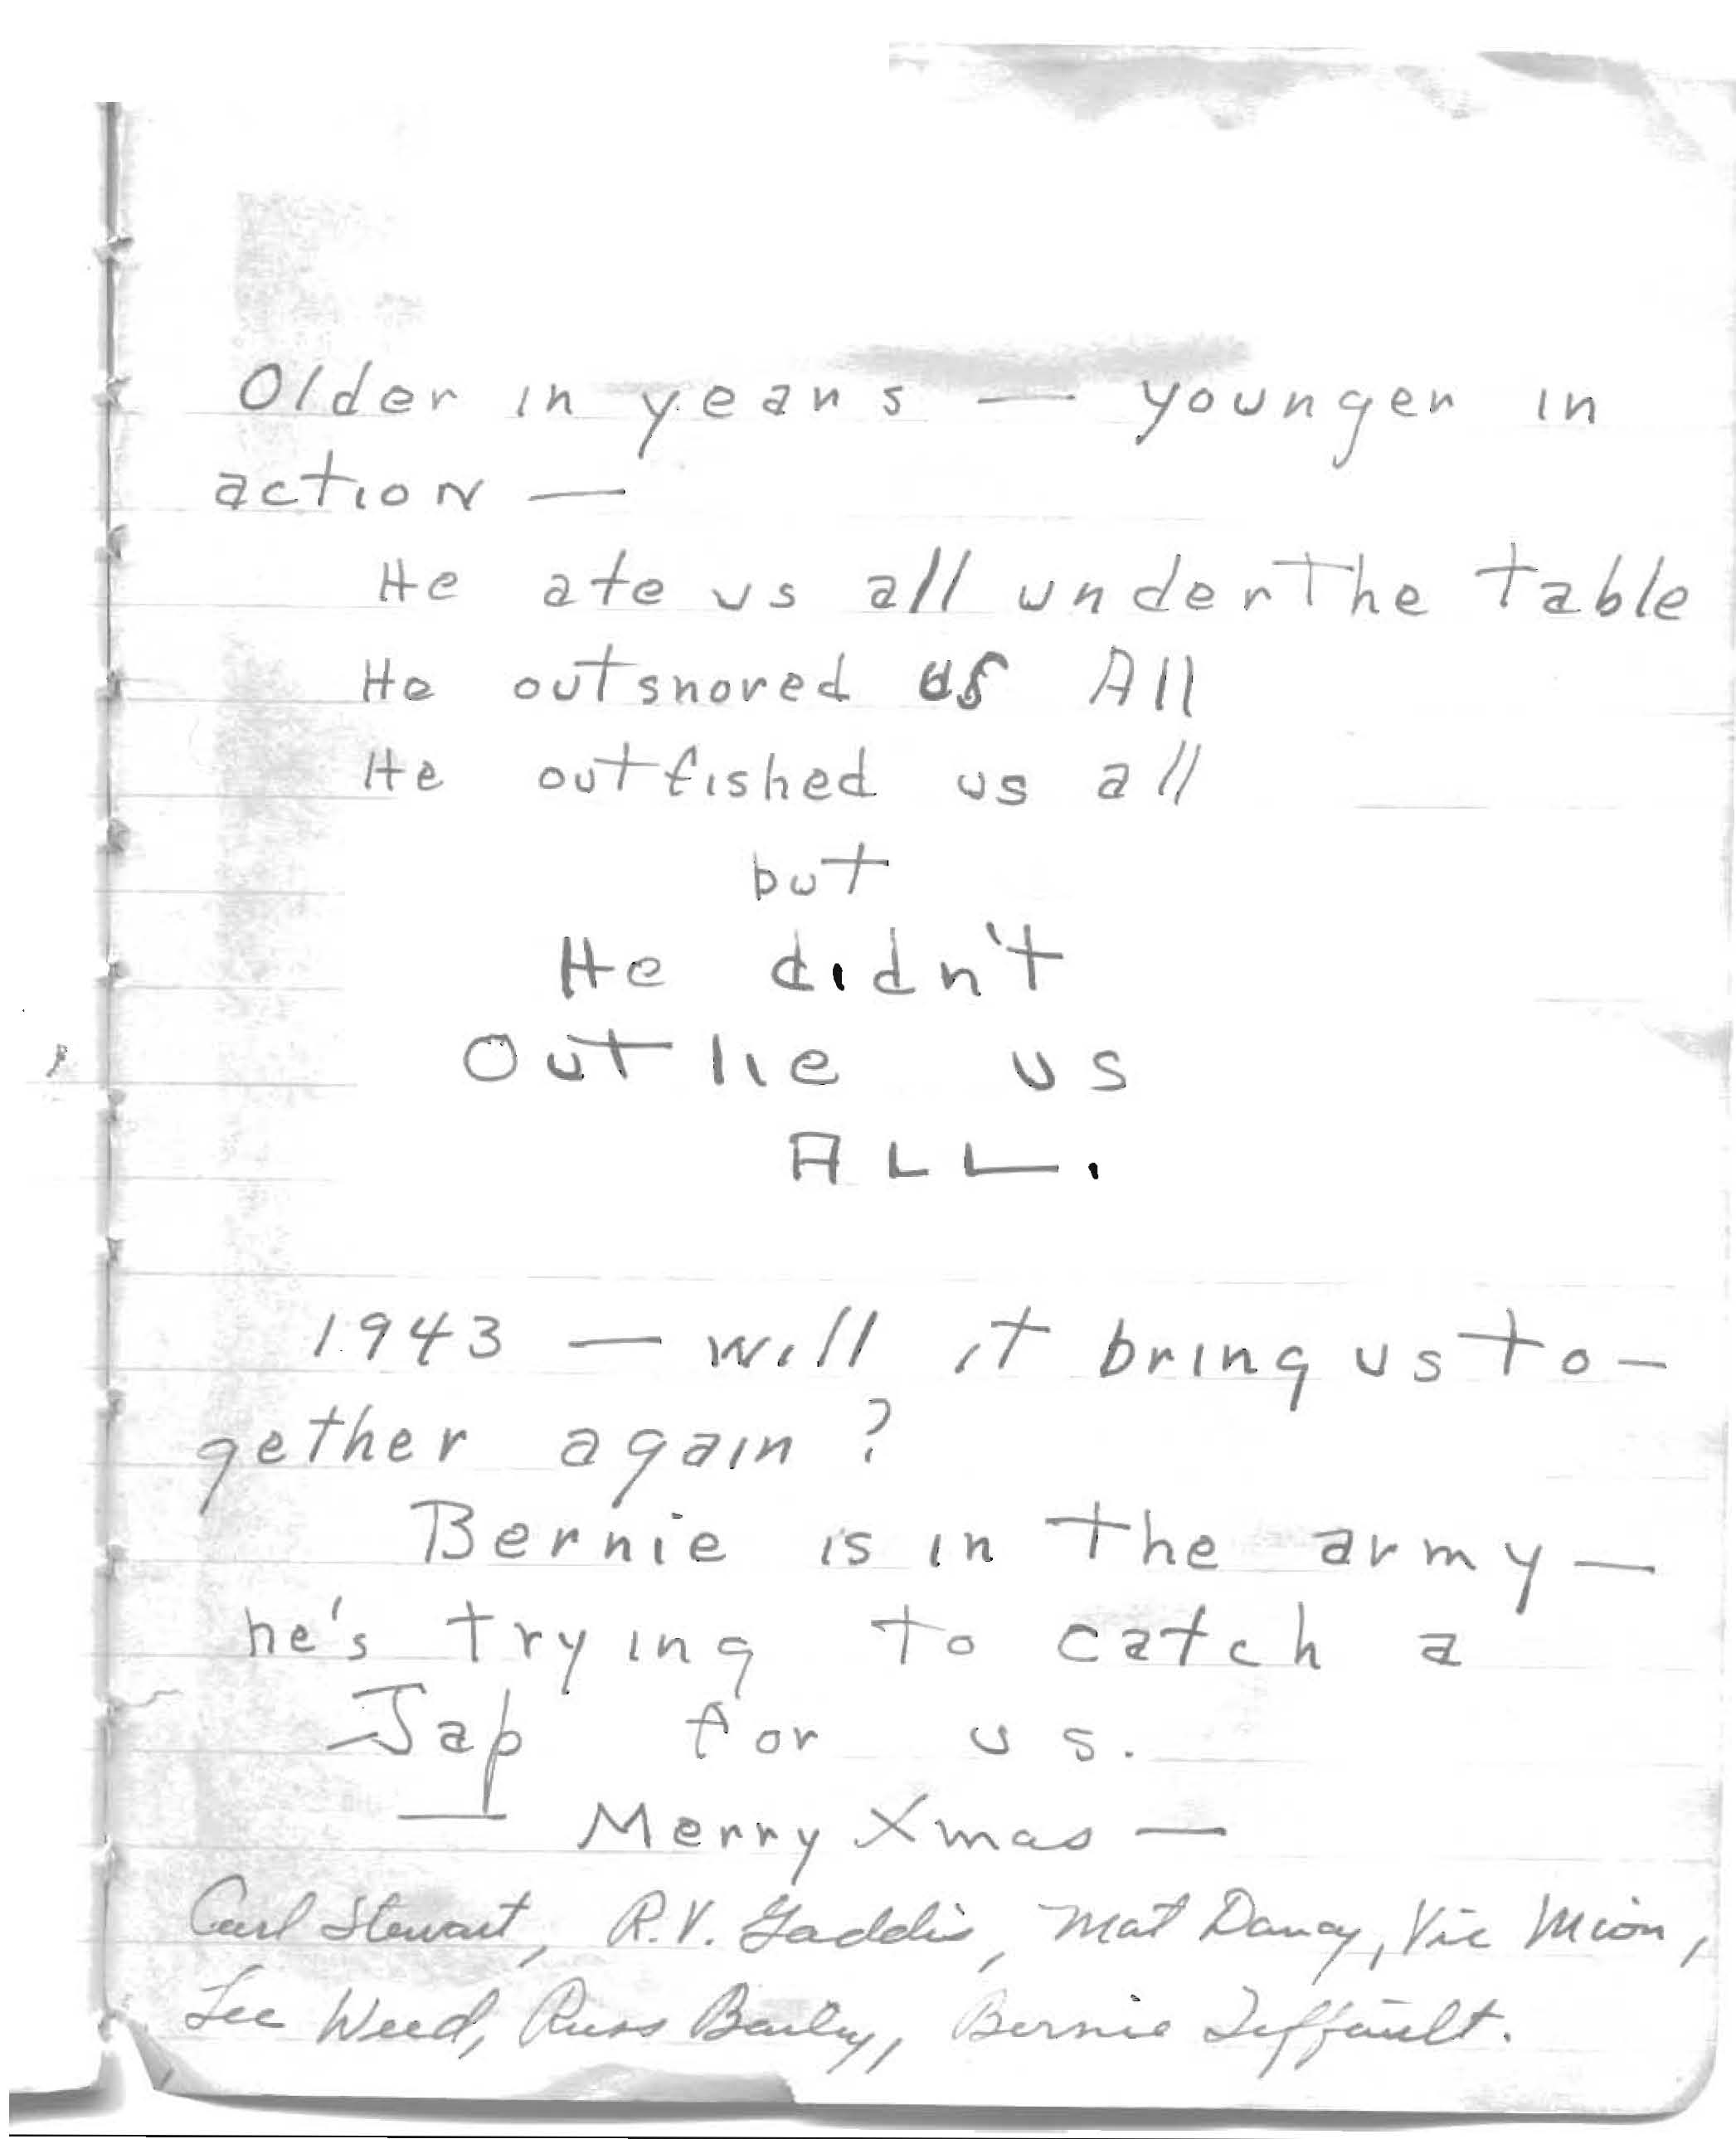 Older in years — younger in
action —
He ate us all under the table
He outsnored us All
He outfished us all
but
He didn't
Out lie us
ALL.
1943 — will it bring us to-
gether again?
Bernie is in the army —
he's trying to catch a
Jap for us.
— Merry Xmas —
Carl Stewart, R.V. Gaddis, Mat Dancy, Vic Mion,
Lee Weed, Russ Bailey, Bernie Tiffault.